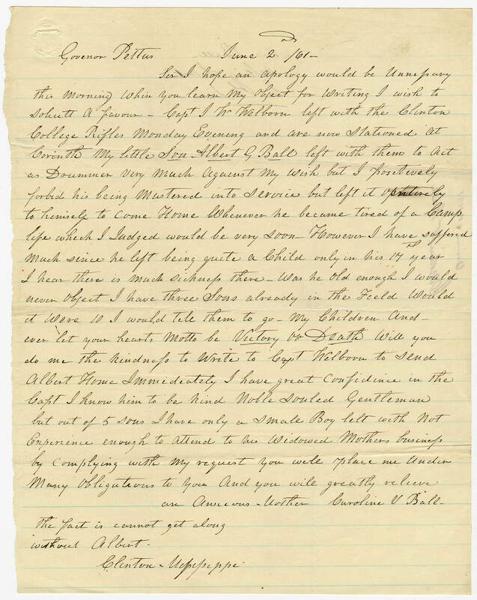 Govenor Pettus June 2nd /61-
Sir I hope an apology would be Unnessary
this morning when you learn My Object for Writing I wish to
solicitt A favour - Capt J W Welborn left with the Clinton
College Rifles Monday Evening and are now Stationed At
Corinth My little Son Albert G Ball left with them to Act
as Drummer very Much Against My Wish but I positively
forbid his being Mustered into Service but left it entirely
to himself to Come Home Whenever he became tired of a Camp
life which I Judged would be very soon - However I have suffered
Much since he left being quite a Child only in his 17 year
I hear there is much sickness there - Was he old enough I would
never Object I have three Sons already in the Field Would
it Were 10 I would tell them to go - My Children And -
ever let your hearts Motto be Victory or Death Will you
do me the kindness to Write to Capt Welborn to send
Albert Home Immediately I have great Confidence in the
Capt I know him to be kind Noble Souled Gentleman
but out of 5 sons I have only a small Boy left with Not
Experience enough to Attend to his Widowed Mothers business
by Complying with My request you will place me Under
Many Obligations to You And you will greatly relieve
an Anxious Mother Caroline V Ball
the fact is cannot get along
without Albert.
Clinton Mississippi